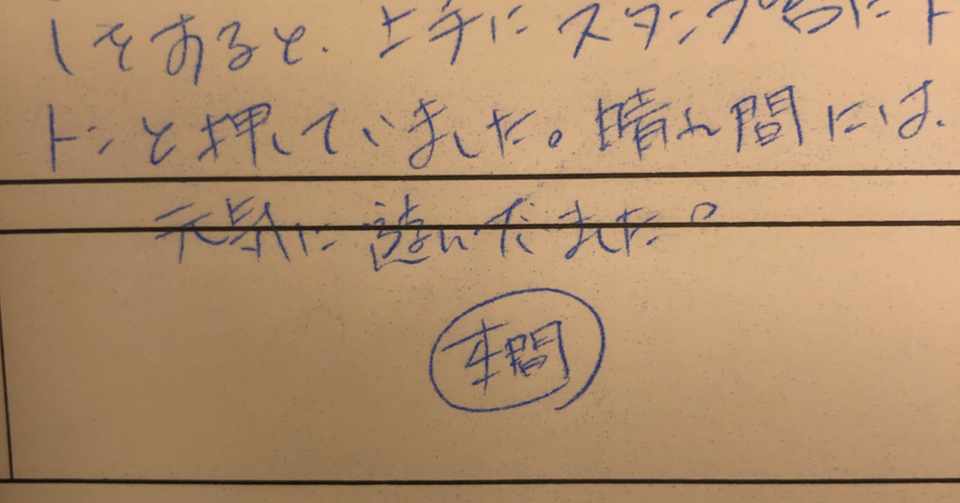 しをすると、上手にスタンプ台にト
ントンと押していました。晴れ間には、
元気に遊んだました。
本間